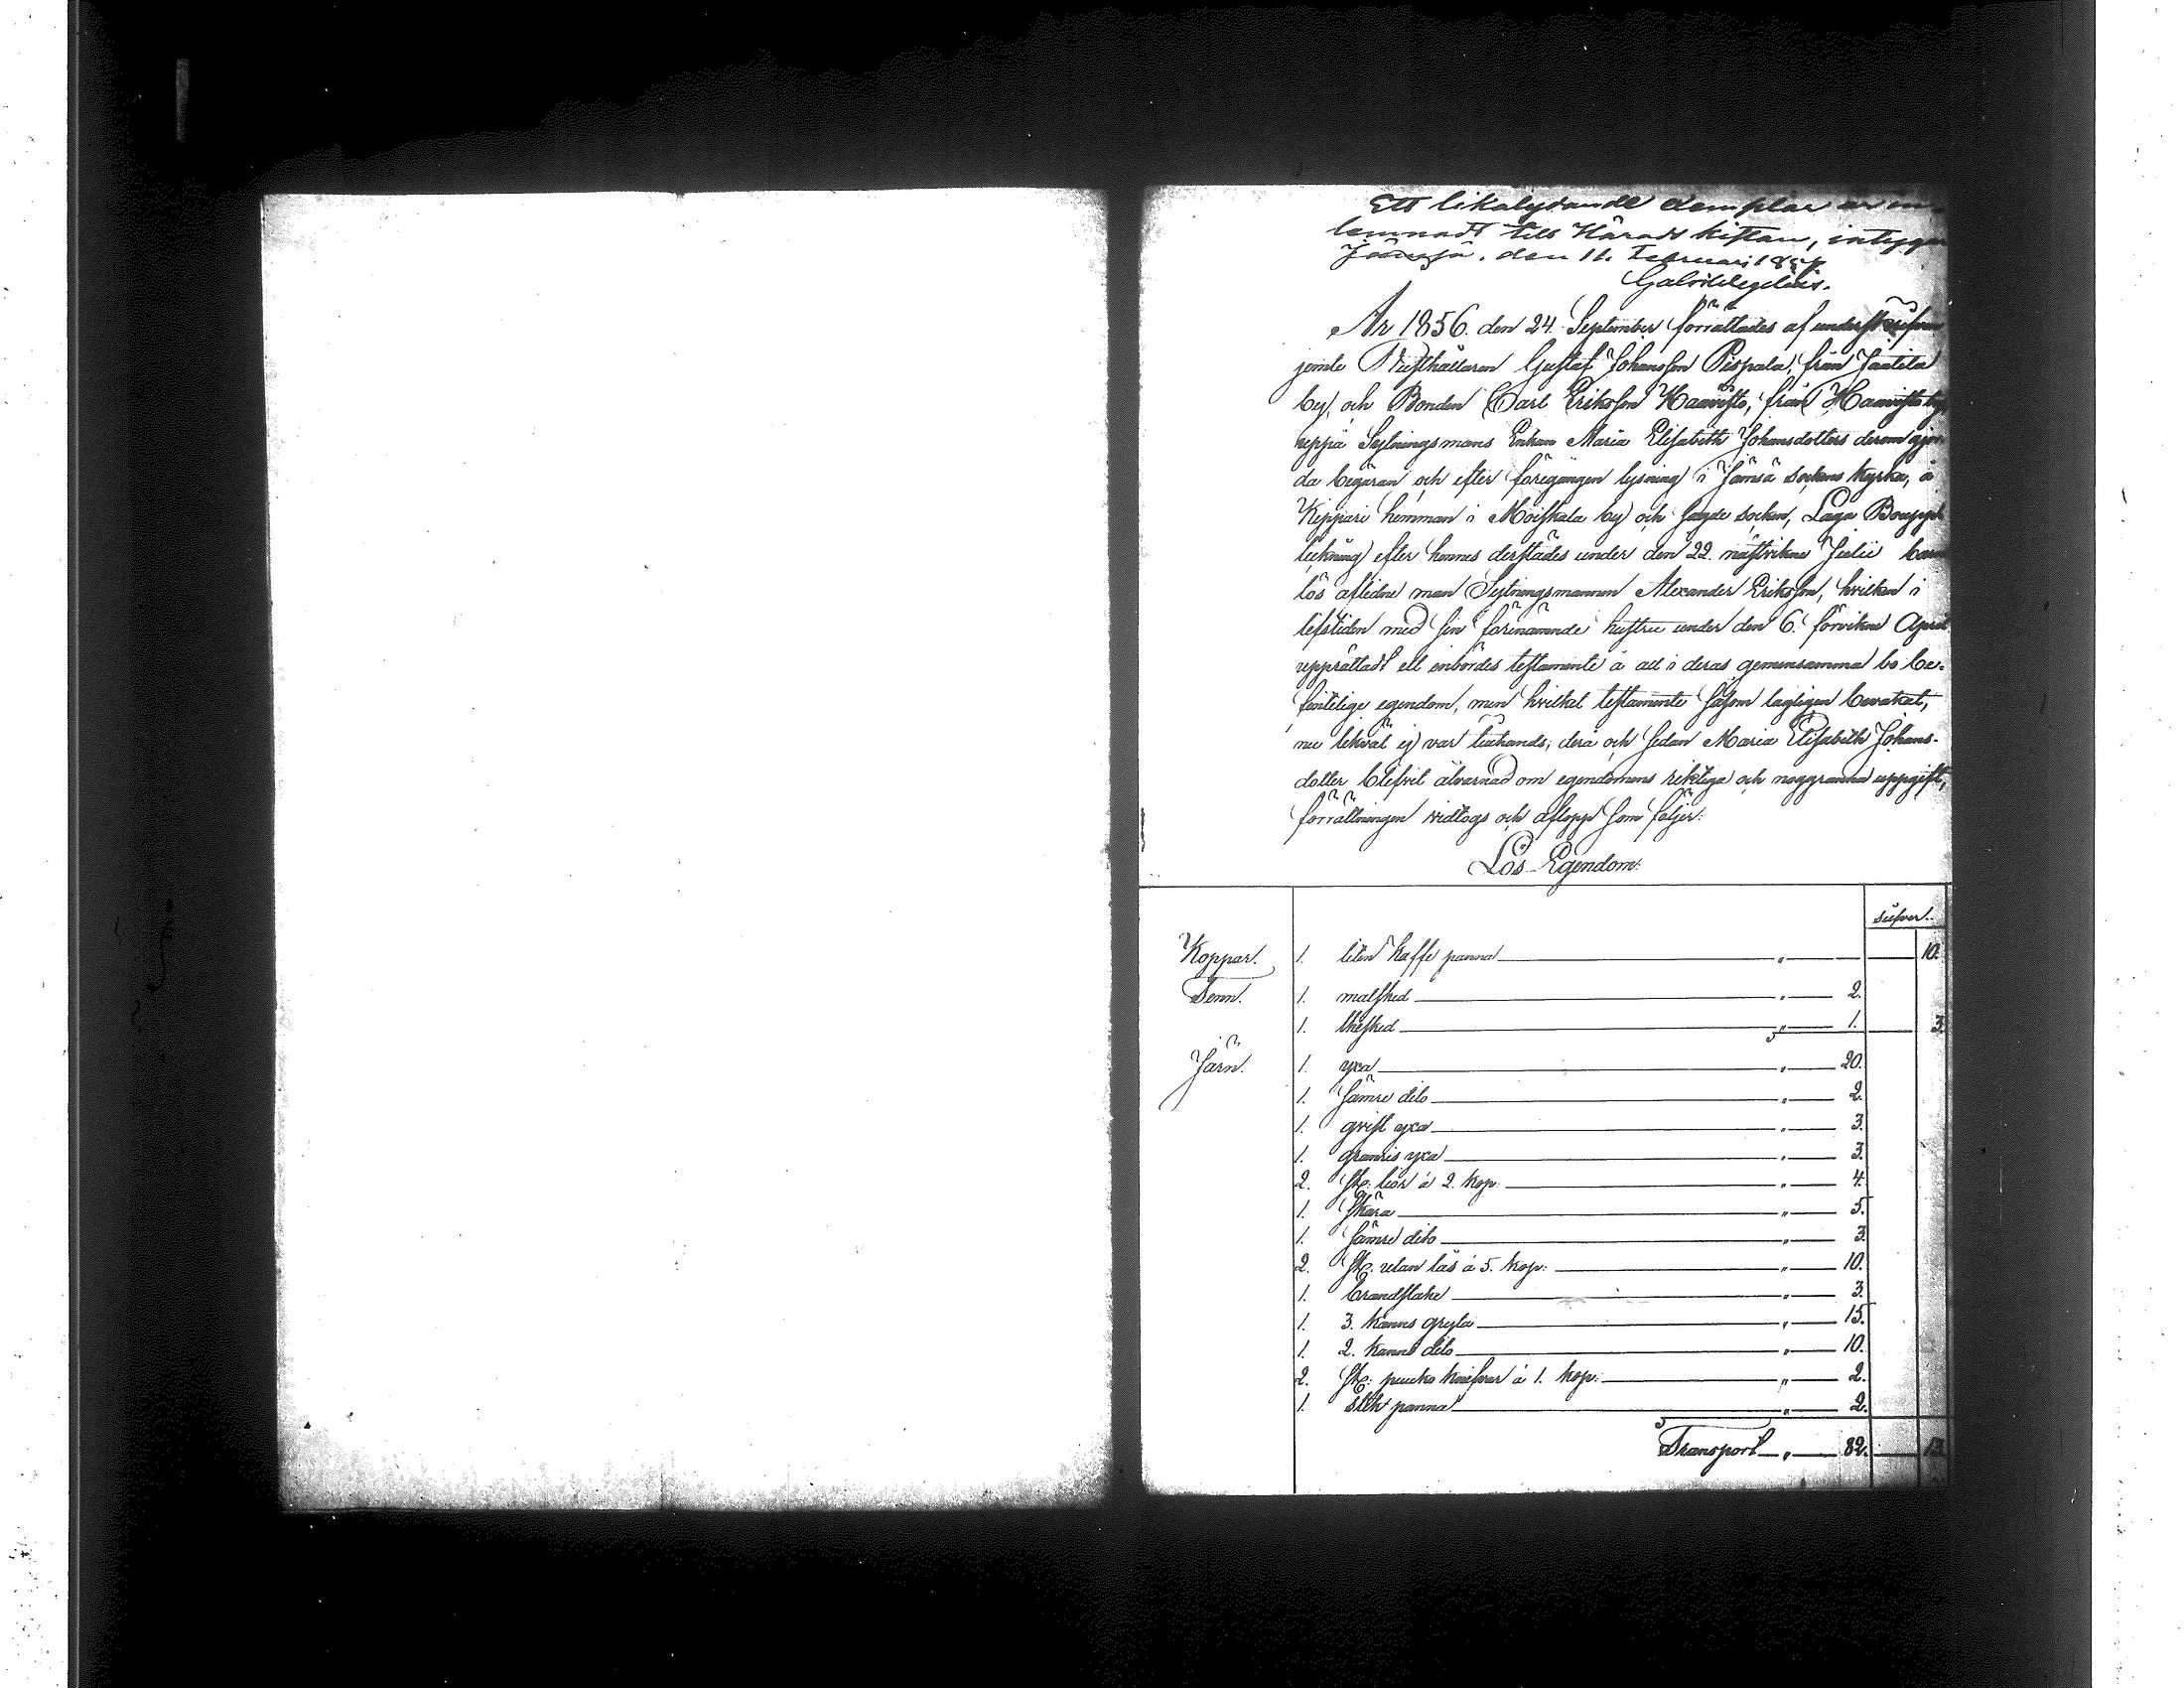 Ett likalydande exemplar är in-
lemnadt till Härads kistan, intygar
Jämsä, den 11. Februari 1857
År 1856. den 24. September förrättades af underskrefven
jemte Rusthållaren Gustaf Johansson Pispala, från Jaatila
by, och Bonden Carl Eriksson Haavisto, från Haavisto by,
uppå Sytningsmans Enkan Maria Elisabeth Johansdotters derom gjor-
da begäran och efter föregången lysning i Jämsä sockens kyrka, å
Keppari hemman i Moiskala by och sagde socken, Laga Bouppt-
teckning efter hennes derstädes under den 22. nästvikne Julii barn-
lös aflidne man Sytningsmannen Alexander Eriksson, hvilken i
lifstiden med sin förenämnde hustru under den 6. förvikne April
upprättadt ett inbördes testamente å all i deras gemensamma bo be-
fintelige egendom, men hvilket testamente såsom lagligen bevakat,
nu likväl ej var tillhands; derå och sedan Maria Elisabeth Johans-
dotter blifvit åtvarnad om egendomens riktiga och noggranna uppgift,
förrättningen vidtogs och aflopp som följer:
Lös Egendom:
silfver.
Koppar. 1. liten kaffe panna " 10.
Tenn. 1. matsked " 2.
1. thesked " 1. 3.
Järn. 1. yxa " 20.
1. sämre dito " 2.
1. qvist yxa " 3.
1. granris yxa " 3.
2. st: liar á 2. kop: " 4.
1. skära " 5.
1. sämre dito " 3.
2. st: utan lås á 5. kop: " 10.
1. brandstake " 3.
1. 3. kanns gryta " 15.
1. 2. kanns dito " 10.
2. st: puuko knifvar á 1. kop: " 2.
1. stek panna " 2.
Transport " 82. 13.